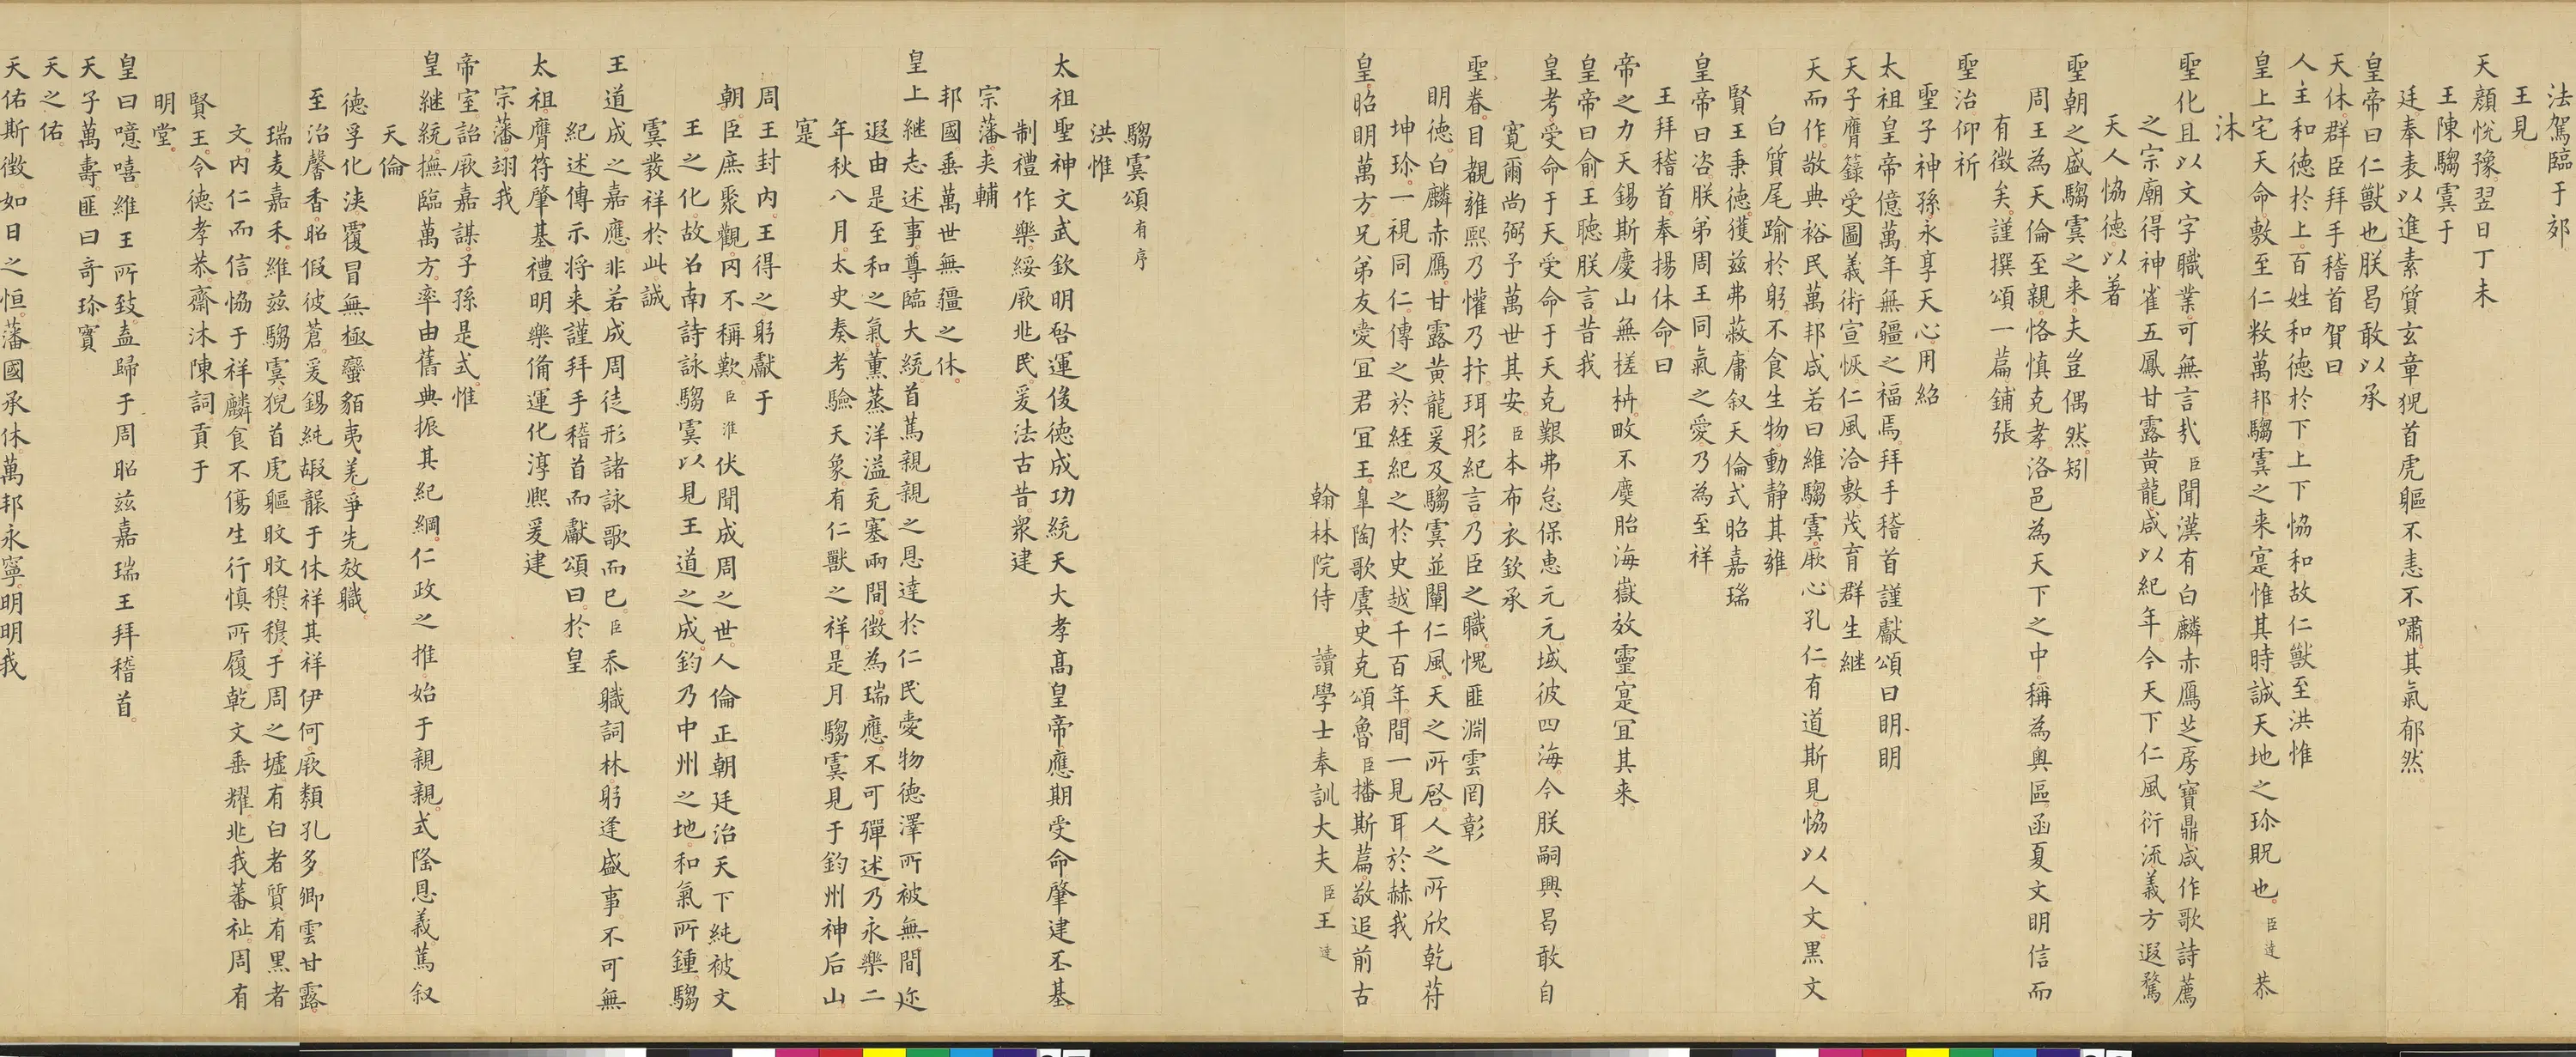 法駕臨于郊
王見
天顏悅豫翌日丁未
王陳騶虞于
廷奉表以進素質玄章猊首虎軀不恚不嘯其氣郁然
皇帝曰仁獸也朕曷敢以承
天休群臣拜手稽首賀曰
人主和德於上百姓和德於下上下恊和故仁獸至洪惟
皇上宅天命敷至仁敉萬邦騶虞之来寔惟其時誠天地之珎貺也臣達恭
沐
聖化且以文字職業可無言㢤臣聞漢有白麟赤鴈芝房寶鼎咸作歌詩薦
之宗廟得神雀五鳳甘露黄龍咸以紀年今天下仁風衍流義方遐騖
天人恊德以著
聖朝之盛騶虞之来夫豈偶然矧
周王為天倫至親恪慎克孝洛邑為天下之中稱為奥區函夏文明信而
有徴矣謹撰頌一篇鋪張
聖治仰祈
聖子神孫永享天心用紹
太祖皇帝億萬年無疆之福焉拜手稽首謹獻頌曰明明
天子膺籙受圖義術宣恢仁風洽敷茂育群生継
天而作敬典裕民萬邦咸若曰維騶虞厥心孔仁有道斯見恊以人文黒文
白質尾踰於躬不食生物動静其雍
賢王秉德獲兹弗蔽庸叙天倫式昭嘉瑞
皇帝曰咨朕弟周王同氣之愛乃為至祥
王拜稽首奉揚休命曰
帝之力天錫斯慶山無槎枿畋不麑胎海嶽效靈寔冝其来
皇帝曰俞王聽朕言昔我
皇考受命于天受命于天克艱弗怠保惠元元域彼四海今朕嗣興曷敢自
寬爾尚弼予萬世其安臣本布衣欽承
聖眷目覩雍熙乃懽乃抃珥彤紀言乃臣之職愧匪淵雲罔彰
明德白麟赤鴈甘露黄龍爰及騶虞並闡仁風天之所啓人之所欣乾苻
坤珎一視同仁傳之於経紀之於史越千百年間一見耳於赫我
皇昭明萬方兄弟友愛冝君冝王臯陶歌虞史克頌魯臣播斯篇敬追前古
翰林院侍　讀學士奉訓大夫臣王達
騶虞頌有序
洪惟
太祖聖神文武欽明啓運俊德成功統天大孝髙皇帝應期受命肇建丕基
制禮作樂綏厥兆民爰法古昔衆建
宗藩夾輔
邦國垂萬世無疆之休
皇上継志述事尊臨大統首篤親親之恩達於仁民愛物德澤所被無間迩
遐由是至和之氣薰蒸洋溢充塞兩間徴為瑞應不可殫述乃永樂二
年秋八月太史奏考驗天象有仁獸之祥是月騶虞見于鈞州神后山
寔
周王封内王得之躬獻于
朝臣庶聚觀罔不稱歎臣淮伏聞成周之世人倫正朝廷治天下純被文
王之化故召南詩詠騶虞以見王道之成鈞乃中州之地和氣所鍾騶
虞發祥於此誠
王道成之嘉應非若成周徒形諸詠歌而已臣忝職詞林躬逢盛事不可無
紀述傳示将来謹拜手稽首而獻頌曰於皇
太祖膺符肇基禮明樂備運化淳熈爰建
宗藩翊我
帝室詒厥嘉謀子孫是式惟
皇継統撫臨萬方率由舊典振其紀綱仁政之推始于親親式隆恩義篤叙
天倫
德孚化浹覆冒無極蠻貊夷羌爭先效職
至治馨香昭假彼蒼爰錫純嘏龎于休祥其祥伊何厥類孔多卿雲甘露
瑞麦嘉禾維兹騶虞猊首虎軀旼旼穆穆于周之墟有白者質有黒者
文内仁而信恊于祥麟食不傷生行慎所履乾文垂耀兆我蕃祉周有
賢王令德孝恭齋沐陳詞貢于
明堂
皇曰噫嘻維王所致盍歸于周昭兹嘉瑞王拜稽首
天子萬壽匪曰竒珎寳
天之佑
天佑斯徴如日之恒藩國承休萬邦永寧明明我